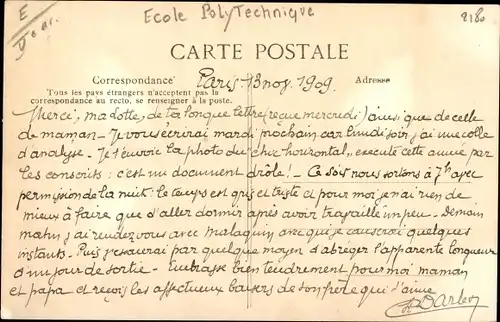 E
Ecole PolyTechnique
2180
CARTE POSTALE
Correspondance
Paris 13 nov. 1909.
Adresse
Tous les pays étrangers n'acceptent pas la
correspondance au recto, se renseigner à la poste.
Merci, ma dotte, de ta longue lettre (reçue mercredi) ainsi que de celle
de maman - Je vous écrirai mardi prochain car lundi soir j'ai une colle
d'analyse - Je t'envoie la photo du "chic horizontal", exécuté cette année par
les conscrits : c'est un document drôle! - Ce soir nous sortons à 7h avec
permission de la nuit : le temps est gris et triste et pour moi je n'ai rien de
mieux à faire que d'aller dormir après avoir travaillé un peu. Demain
matin j'ai rendez vous avec Malaquin avec qui je causerai quelques
instants. Puis j'essaierai par quelque moyen d'abréger l'apparente longueur
d'un jour de sortie - Embrasse bien tendrement pour moi maman
et papa et reçois les affectueux baisers de ton frère qui t'aime